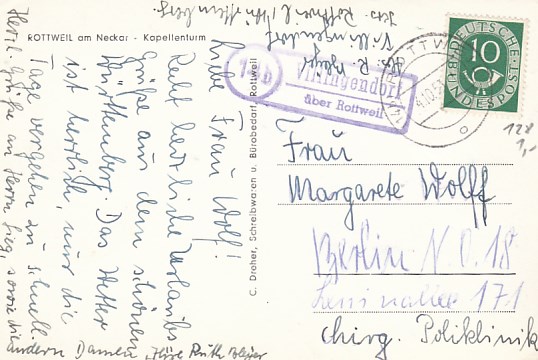 ROTTWEIL am Neckar - Kapellenturm
Liebe Frau Wolf!
Recht herzliche Urlaubs
grüße aus dem schönen
Württemberg. Das Wetter
ist herrlich, nur die
Tage vergehen zu schnell
Herzl. Grüße an Herrn
sowie die
andern Damen, Ihre Ruth
C. Dreher, Schreibwaren u. Bürobedarf, Rottweil
Villingendorf
14b
Villingendorf
über Rottweil
DEUTSCHE
BUNDESPOST
10
Frau
Margarete Wolff
Berlin N.O. 18
Leninallee 171
Chirg. Poliklinik
128
1,-